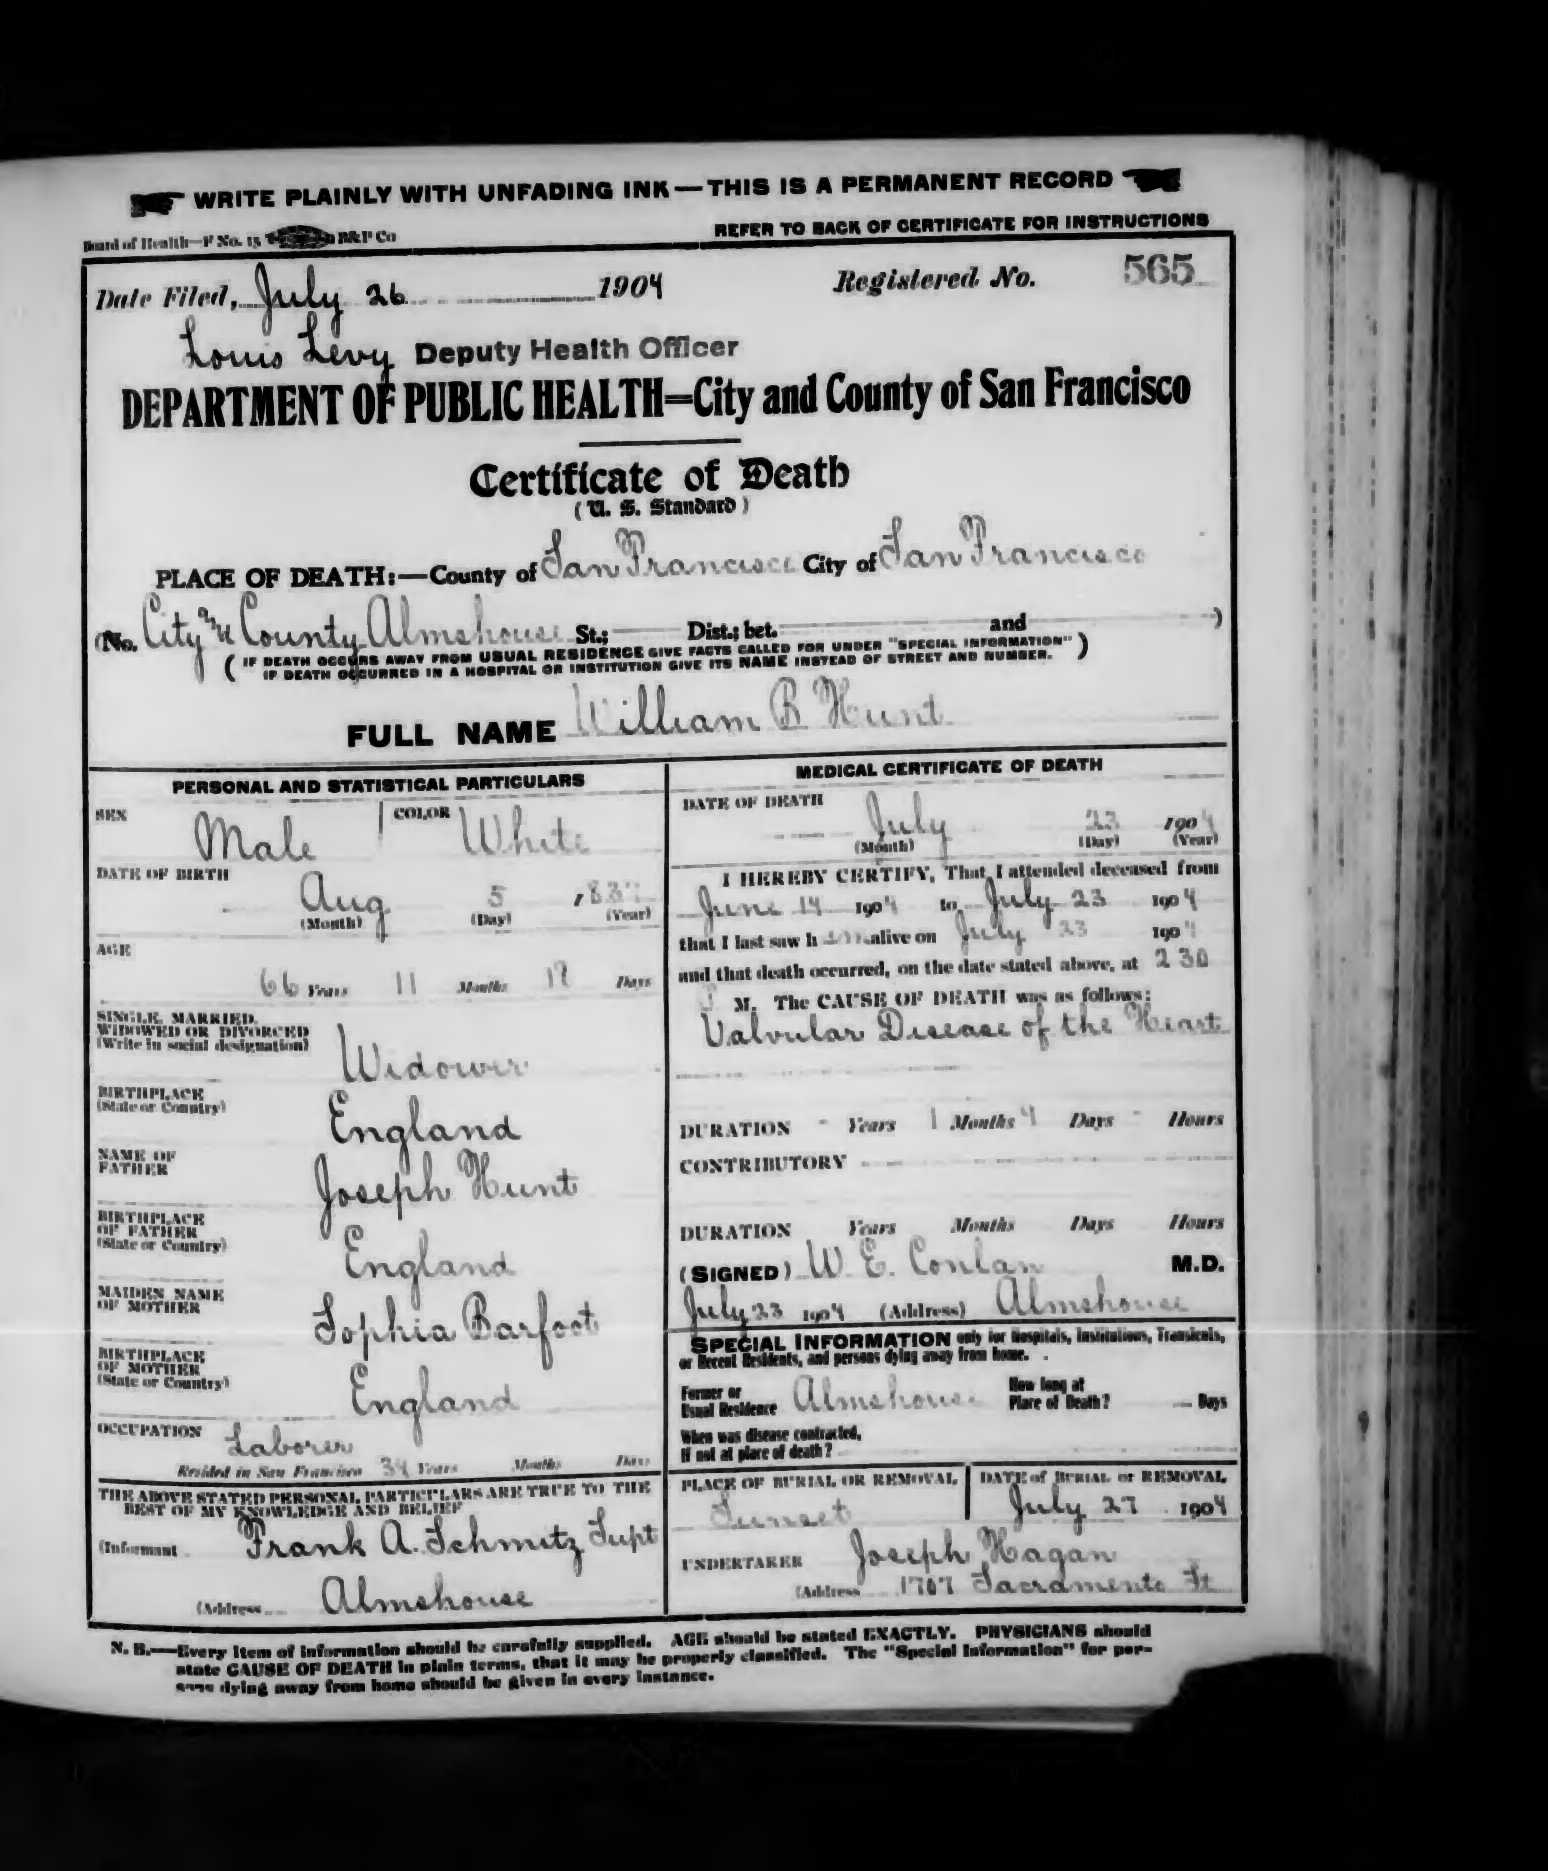 WRITE PLAINLY WITH UNFADING INK—THIS IS A PERMANENT RECORD
Board of Health—F No. 15 B&P Co
REFER TO BACK OF CERTIFICATE FOR INSTRUCTIONS
Date Filed, July 26 1904 Registered No. 565
Louis Levy Deputy Health Officer
DEPARTMENT OF PUBLIC HEALTH—City and County of San Francisco
Certificate of Death
(U. S. Standard)
PLACE OF DEATH:—County of San Francisco City of San Francisco
(No. City and County Almshouse St.; Dist.; bet. and )
( IF DEATH OCCURS AWAY FROM USUAL RESIDENCE GIVE FACTS CALLED FOR UNDER "SPECIAL INFORMATION" )
IF DEATH OCCURRED IN A HOSPITAL OR INSTITUTION GIVE ITS NAME INSTEAD OF STREET AND NUMBER.
FULL NAME William B Hunt
PERSONAL AND STATISTICAL PARTICULARS
SEX Male COLOR White
DATE OF BIRTH
Aug 5 1837
(Month) (Day) (Year)
AGE
66 Years 11 Months Days
SINGLE, MARRIED,
WIDOWED OR DIVORCED
(Write in social designation) Widower
BIRTHPLACE
(State or Country) England
NAME OF
FATHER Joseph Hunt
BIRTHPLACE
OF FATHER
(State or Country) England
MAIDEN NAME
OF MOTHER Sophia Barfoot
BIRTHPLACE
OF MOTHER
(State or Country) England
OCCUPATION Laborer
Resided in San Francisco 34 Years Months Days
THE ABOVE STATED PERSONAL PARTICULARS ARE TRUE TO THE
BEST OF MY KNOWLEDGE AND BELIEF
(Informant Frank A. Schmitz Supt
(Address Almshouse
MEDICAL CERTIFICATE OF DEATH
DATE OF DEATH
July 23 1904
(Month) (Day) (Year)
I HEREBY CERTIFY, That I attended deceased from
June 14 1904 to July 23 1904
that I last saw him alive on July 23 1904
and that death occurred, on the date stated above, at 2 30
M. The CAUSE OF DEATH was as follows:
Valvular Disease of the Heart
DURATION - Years 1 Months 4 Days - Hours
CONTRIBUTORY
DURATION Years Months Days Hours
(SIGNED) W. E. Conlan M.D.
July 23 1904 (Address) Almshouse
SPECIAL INFORMATION only for Hospitals, Institutions, Transients,
or Recent Residents, and persons dying away from home.
Former or
Usual Residence Almshouse
How long at
Place of Death? Days
When was disease contracted,
If not at place of death?
PLACE OF BURIAL OR REMOVAL
Sunset
DATE of BURIAL or REMOVAL
July 27 1904
UNDERTAKER Joseph Hagan
(Address 1707 Sacramento St
N. B.—Every item of information should be carefully supplied. AGE should be stated EXACTLY. PHYSICIANS should
state CAUSE OF DEATH in plain terms, that it may be properly classified. The "Special Information" for per-
sons dying away from home should be given in every instance.